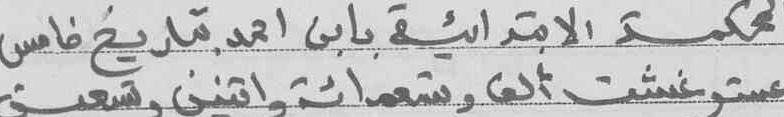 لمحكمة الابتدائية بابن احمد بتاريخ خامس
عشر غشت ألف وتسعمائة واثنين وتسعين